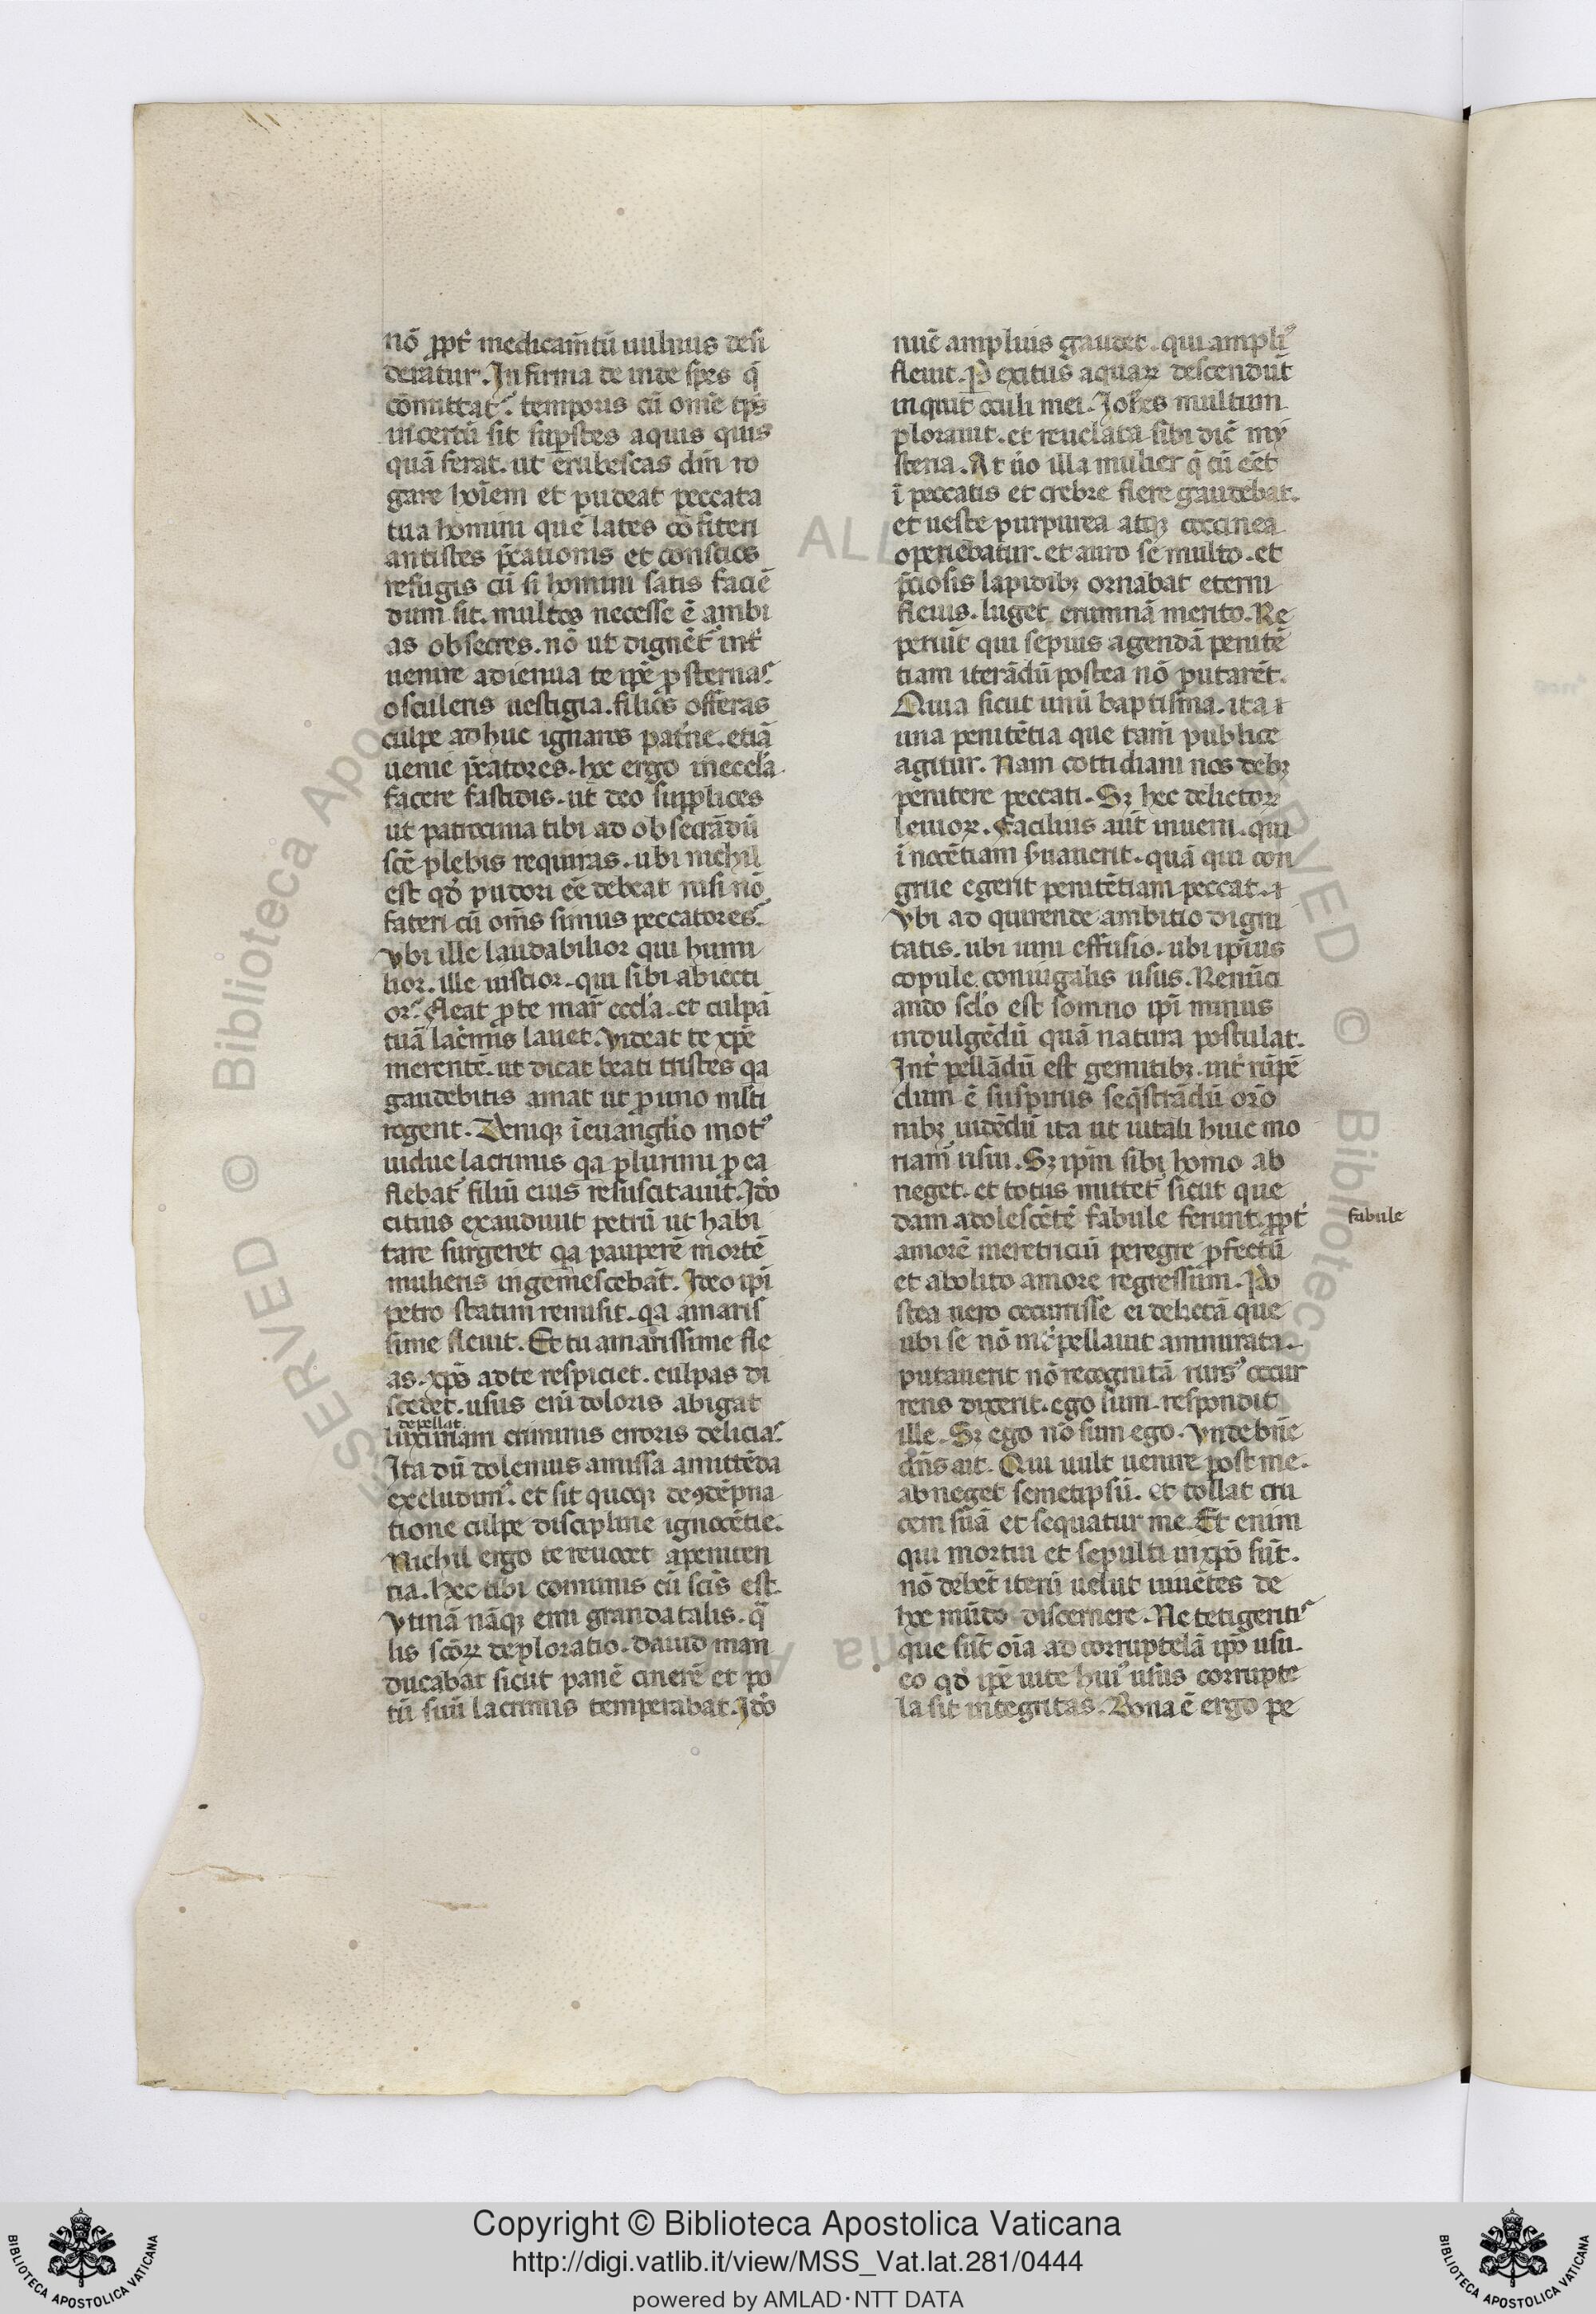 nō ꝓpt̛ medicam̄tū uulnus desi
deratur. Infirma de inde spes q̄
cōmittat᷑ temporis cū om̄e tp̄s
incertū sit suꝑstes aquis quis
quā ferat. ut erubescas dm̄ ro
gare hoīem et pudeat peccata
tua homini quē lates cōfiteri
antistes p̄cationis et conscios
refugis cū si homini satis faciē
dum sit. multos necesse ē ambi
as obsecres. nō ut dignēt᷑ int̛
uenire ad ienua te ip̄e ꝓsternas
osculeris uestigia. filios offeras
culpe adhuc ignaros pat̛ne. etiā
uenie p̄catores. hoc ergo in eccl̄a
facere fastidis. ut deo supplices
ut patrocinia tibi ad obsecrādū
sc̄e plebis requiras. ubi nichil
est qd̛ pudori eē debeat nisi nō
fateri cū om̄s simus peccatores.
Vbi ille laudabilior qui humi
lior. ille iustior. qui sibi abiecti
or. fleat ꝓ te mat̄ eccl̄a. et culpā
tuā lac̛mis lauet. Videat te xp̄c
merentē. ut dicat beati tristes qa
gaudebitis amat ut ꝓ uno m̄lti
rogent. Deniqꝫ ī euangl̄io mot᷒
uidue lacrimis qa plurimi ꝓ ea
flebāt filiū eius resuscitauit. Id̛o
citius exaudiuit petrū ut habi
tare surgeret qa pauperē mortē
mulieris ingemescebāt. Ideo ip̄i
petro statim remisit. qa amaris
sime fleuit. Et tu amarissime fle
as. xp̄s ad te respiciet. culpas di
scedēt. usus eni doloris abigat
depellat
luxuriam criminis erroris delicias
Ita dū dolemus amissa amittēda
excludim᷒. et sit quoqꝫ de ꝯdēpna
tione culpe discipline ignocētie.
Nichil ergo te reuocet a peniten
tia. hec tibi comunis cū sc̄is est.
Vtinā nāqꝫ emi granda talis. q̄
lis sc̄oꝝ deploratio. dauid man
ducabat sicut panē cinerē et po
tū suū lacrimis temperabat. Id̛o
nūc amplius gaudet. qui ampli᷒
fleuit. Ꝑ exitus aquaꝝ descendūt
inquit oculi mei. Joh̄es multum
plorauit. et reuelata sibi dic̄ my
steria. At ūo illa mulier q̄ cū eēt
ī peccatis et crebre flere gaudebat.
et ueste purpurea atqꝫ coccinea
operiebatur. et auro se multo. et
p̄ciosis lapidibꝫ ornabat eterni
fleuis. luget erumnā merito. Re
periūt qui sepius agendā penitē
tiam iterādū postea nō putarēt.
Quia sicut unū baptisma. ita ⁊
una penitētia que tam̄ publice
agitur. Nam cottidiani nos debꝫ
penitere peccati. Sꝫ hec delictoꝝ
leuioꝝ. facilius aut̄ inueni. qui
īnocētiam s̄uauerit. quā qui con
grue egerit penitētiam peccat. ⁊
Vbi ad quirende ambitio digni
tatis. ubi uini effusio. ubi ip̄ius
copule coniugalis usus. Renūci
ando scl̄o est somno ip̄i minus
indulgēdū quā natura postulat.
Int̛ pellādū est gemitibꝫ. int̛ rūpē
dum ē suspirius seq̄strādū orō
nibꝫ uidēdū ita ut uitali huic mo
riam̄ usui. Sꝫ ip̄m sibi homo ab
neget. et totus mittet᷑ sicut que
dam adolescētē fabule ferunt. ꝓpt̛
amorē meretriciū peregre ꝓfectū
et abolito amore regressum. Po
stea uero occurrisse ei delictā que
ubi se nō int̛pellauit ammirata.
putauerit nō recognitā rurs᷒ occur
rens dixerit. ego sum. respondit
ille. Sꝫ ego nō sum ego. Vnde bn̄e
dn̄s ait. Qui uult uenire post me.
abneget semetipsū. et tollat cru
cem suā et sequatur me. Et enim
qui mortui et sepulti in xp̄o sūt.
nō debēt iterū uelut uiuētes de
hoc mūdo discernere. Ne tetigeritis
que sūt oīa ad corruptelā ip̄o usu.
eo qd̛ ip̄e uite hui᷒ usus corrupte
la sit integritas. Bona ē ergo pe
fabule
Copyright © Biblioteca Apostolica Vaticana
http://digi.vatlib.it/view/MSS_Vat.lat.281/0444
powered by AMLAD·NTT DATA
BIBLIOTECA APOSTOLICA VATICANA
BIBLIOTECA APOSTOLICA VATICANA